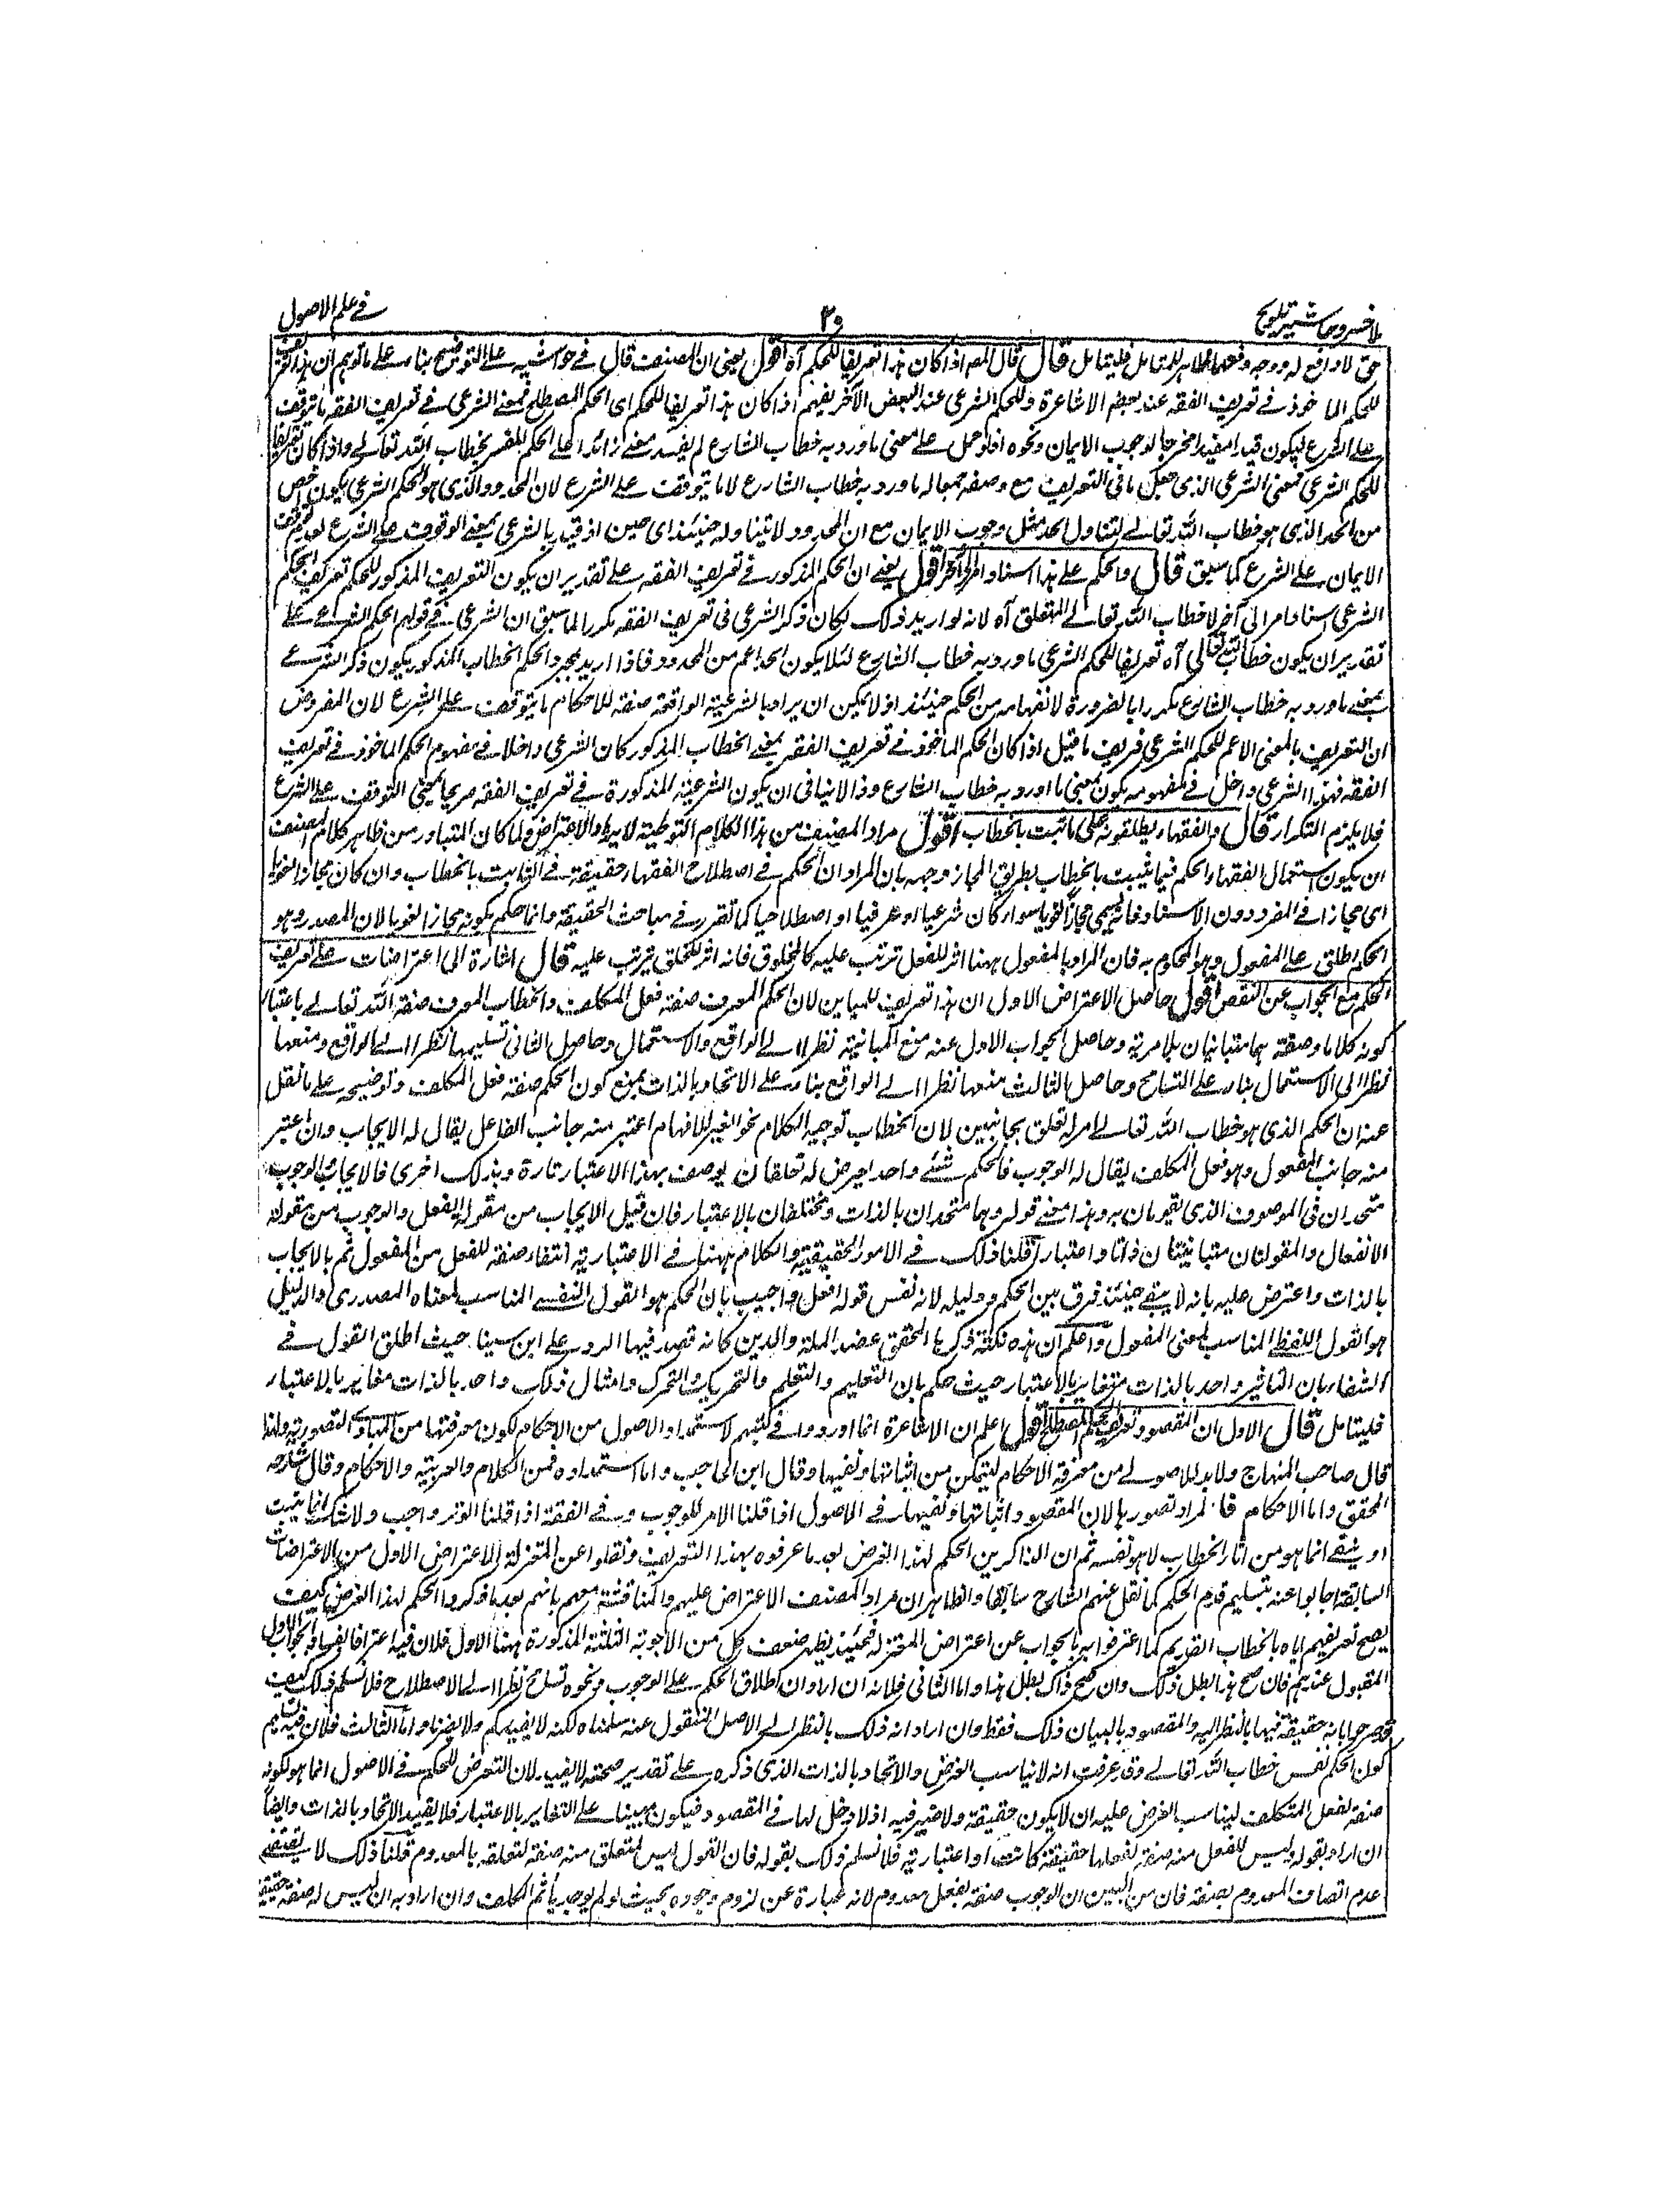 ملا خسرو حاشیہ تلویح
۳۰
فے علم الاصول
حق لا دافع له ووجه دفعهما ظاهر للمتامل فليتامل قال قال المص اذا كان هذا تعريفا للحكم آه اقول يعنى ان المصنف قال فے حواشيه على التوضيح بناء على ما توهم ان هذا تعريف
للحكم الماخوذ فے تعريف الفقه عند بعض الاشاعرة وللحكم الشرعى عند البعض الآخر يفهم اذا كان هذا تعريفا للحكم اى الحكم المصطلح فمعنے الشرعى فے تعريف الفقه ما يتوقف
علے الشرع ليكون قيدا مفيدا مخرجا لوجوب الايمان ونحوه اذ لو حمل علے معنى ما ورد به خطاب الشارع لم يفد معنے زائدا علے الحكم المفسر بخطاب الله تعالے واذا كان تعريفا
للحكم الشرعى فمعنى الشرعى الذى جعل ما فى التعريف مع وصفه مجعا له ما ورد به خطاب الشارع لا ما يتوقف علے الشرع لان المحدود الذى هو الحكم الشرعى يكون اخص
من الحد الذى هو خطاب الله تعالے لتناول الحد مثل وجوب الايمان مع ان المحدود لا يتناوله حينئذ اى حين اذ قيد بالشرعى بمعنے الوقوف علے الشرع لعدم توقف
الايمان علے الشرع كما سبق قال والحكم علے هذا اسناد امر الى آخر اقول يعنے ان الحكم المذكور فے تعريف الفقه علے تقدير ان يكون التعريف المذكور للحكم تعريف الحكم
الشرعى اسناد امر الى آخر لا خطاب الله تعالے المتعلق آه لانه لو اريد ذلك لكان ذكر الشرعى فى تعريف الفقه مكررا لما سبق ان الشرعى فے قولهم الحكم الشرعے علے
تقدير ان يكون خطاب الله تعالى آه تعريفا للحكم الشرعى ما ورد به خطاب الشارع لئلا يكون الحد اعم من المحدود فاذا اريد بمجرد الحكم الخطاب المذكور يكون ذكر الشرعے
بمعنے ما ورد به خطاب الشارع مكررا بالضرورة لانفهامه من الحكم حينئذ اذ لا يمكن ان يراد بالشرعية الواقعة صفة للاحكام ما يتوقف علے الشرع لان المفروض
ان التعريف بالمعنى الاعم للحكم الشرعى فزيف ما قيل اذا كان الحكم الماخوذ فے تعريف الفقه بمعنے الخطاب المذكور كان الشرعى داخلا فے مفهوم الحكم الماخوذ فے تعريف
الفقه فهذا الشرعى داخل فے مفهومه يكون بمعنى ما ورد به خطاب الشارع وذا لا ينافى ان يكون الشرعية المذكورة فے تعريف الفقه صريحا بمعنى التوقف علے الشرع
فلا يلزم التكرار قال والفقهاء يطلقونه على ما ثبت بالخطاب اقول مراد المصنف من هذا الكلام التوطية لايراد الاعتراض ولما كان المتبادر من ظاهر كلام المصنف
ان يكون استعمال الفقهاء الحكم فيما يثبت بالخطاب بطريق المجاز وجهه بان المراد ان الحكم فے اصطلاح الفقهاء حقيقة فے الثابت بالخطاب وان كان مجازا لغويا
اى مجازا فے المفرد دون الاسناد فانه يسمى مجازا لغويا سواء كان شرعيا او عرفيا او اصطلاحيا كما تقرر فے مباحث الحقيقة وانما حكم بكونه مجازا لغويا لان المصدر وهو
الحكم اطلق علے المفعول وهو المحكوم به فان المراد بالمفعول ههنا اثر للفعل ترتب عليه كالمخلوق فانه اثر للخلق يترتب عليه قال اشارة الى اعتراضات علے تعريف
الحكم مع الجواب عن النقص اقول حاصل الاعتراض الاول ان هذا تعريف للمباين لان الحكم المعرف صفة فعل المكلف والخطاب المعرف صفة الله تعالے باعتبار
كونه كلاما وصفته هما متباينان بلا مرية وحاصل الجواب الاول عنه منع المباينة نظرا الے الواقع والاستعمال وحاصل الثانى تسليمها نظرا الے الواقع ومنعها
نظرا الى الاستعمال بناء على التسامح وحاصل الثالث منعها نظرا الے الواقع بناء على الاتحاد بالذات بمنع كون الحكم صفة فعل المكلف وتوضيحه علے ما نقل
عنه ان الحكم الذى هو خطاب الله تعالے امر له تعلق بجانبين لان الخطاب توجيه الكلام نحو الغير للافهام اعتبر منه جانب الفاعل يقال له الايجاب وان اعتبر
منه جانب المفعول وهو فعل المكلف يقال له الوجوب فالحكم شئے واحد يعرض له تعلقان يوصف بهذا الاعتبار تارة وبذلك اخرى فالايجاب والوجوب
متحدان فى الموصوف الذى يقومان به وهذا معنے قوله وهما متحدان بالذات ومختلفان بالاعتبار فان قيل الايجاب من مقولة الفعل والوجوب من مقولة
الانفعال والمقولتان متباينتان ذاتا واعتبارا قلنا ذلك فے الامور الحقيقية والكلام ههنا فے الاعتبارية انتفاء صفة للفعل من المفعول ثم بالايجاب
بالذات واعترض عليه بانه لا يبقے حينئذ فرق بين الحكم ودليله لانه نفس قوله افعل واجيب بان الحكم هو القول النفسے المناسب لمعناه المصدرى والدليل
هو القول اللفظے المناسب لمعنى المفعول واعلم ان هذه نكتة ذكرها المحقق عضد الملة والدين كانه قصد فيها الرد على ابن سينا حيث اطلق القول فے
الشفاء بان التاثير واحد بالذات متغاير بالاعتبار حيث حكم بان التعليم والتعلم والتحريك والتحرك وامثال ذلك واحد بالذات مغاير بالاعتبار
فليتامل قال الاول ان المقصود تعريف الحكم المصطلح اقول اعلم ان الاشاعرة انما اوردوا فے كتبهم لاستمداد الاصول من الاحكام لكون معرفتها من المبادى التصورية ولذا
قال صاحب المنهاج ولا بد للاصولے من معرفة الاحكام ليتمكن من اثباتها ونفيها وقال ابن الحاجب واما استمداده فمن الكلام والعربية والاحكام وقال شارحه
المحقق واما الاحكام فالمراد تصورها لان المقصود اثباتها ونفيها فے الاصول اذا قلنا الامر للوجوب وفے الفقه اذا قلنا الوتر واجب ولا شك انما يثبت
او ينفے انما هو من آثار الخطاب لا هو نفسه ثم ان الذاكرين الحكم لهذا الغرض بعد ما عرفوه بهذا التعريف ونقلوا عن المعتزلة الاعتراض الاول من الاعتراضات
السابقة اجابوا عنه بتسليم قدم الحكم كما نقل عنهم الشارح سابقا والظاهر ان مراد المصنف الاعتراض عليهم والمناقشة معهم بانهم بعد ما ذكروا الحكم لهذا الغرض كيف
يصح تعريفهم اياه بالخطاب القديم كما اعترفوا به بالجواب عن اعتراض المعتزلة فحينئذ يظهر ضعف كل من الاجوبة الثلثة المذكورة ههنا الاول فلان فيه اعترافا لهما والجواب الاول
المقبول عندهم فان صح هذا بطل ذلك وان صح ذاك بطل هذا واما الثانى فلانه ان اراد ان اطلاق الحكم علے الوجوب ونحوه تسامح نظرا الے الاصطلاح فلا نسلم ذلك كيف
وصرحوا بانه حقيقة فيها بالنظر اليه والمقصود بالبيان ذلك فقط وان اراد انه ذلك بالنظر الے الاصل المنقول عنه سلمناه لكنه لا يفيدكم ولا يضرنا واما الثالث فلان فيه تسليم
كون الحكم نفس خطاب الله تعالے وقد عرفت انه لا يناسب الغرض والاتحاد بالذات الذى ذكره علے تقدير صحته لا يفيد لان التعرض للحكم فے الاصول انما هو لكونه
صفة لفعل المكلف ليناسب الغرض عليه ان لا يكون حقيقة ولا ضير فيه اذ لا دخل لها فى المقصود فيكون مبينا علے التغاير بالاعتبار فلا يفيد الاتحاد بالذات وايضا
ان اراد بقوله وليس للفعل منه صفة لفعلها حقيقة كانت او اعتبارية فلا نسلم ذلك بقوله فان القول ليس لمتعلق منه صفة لتعلقه بالمعدوم قلنا ذلك لا يقتضے
عدم اتصاف المعدوم بصفة فان من البين ان الوجوب صفة لفعل معدوم لانه عبارة عن لزوم وجوده بحيث لو لم يوجد ياثم المكلف وان اراد به ان ليس له صفة حقيقة